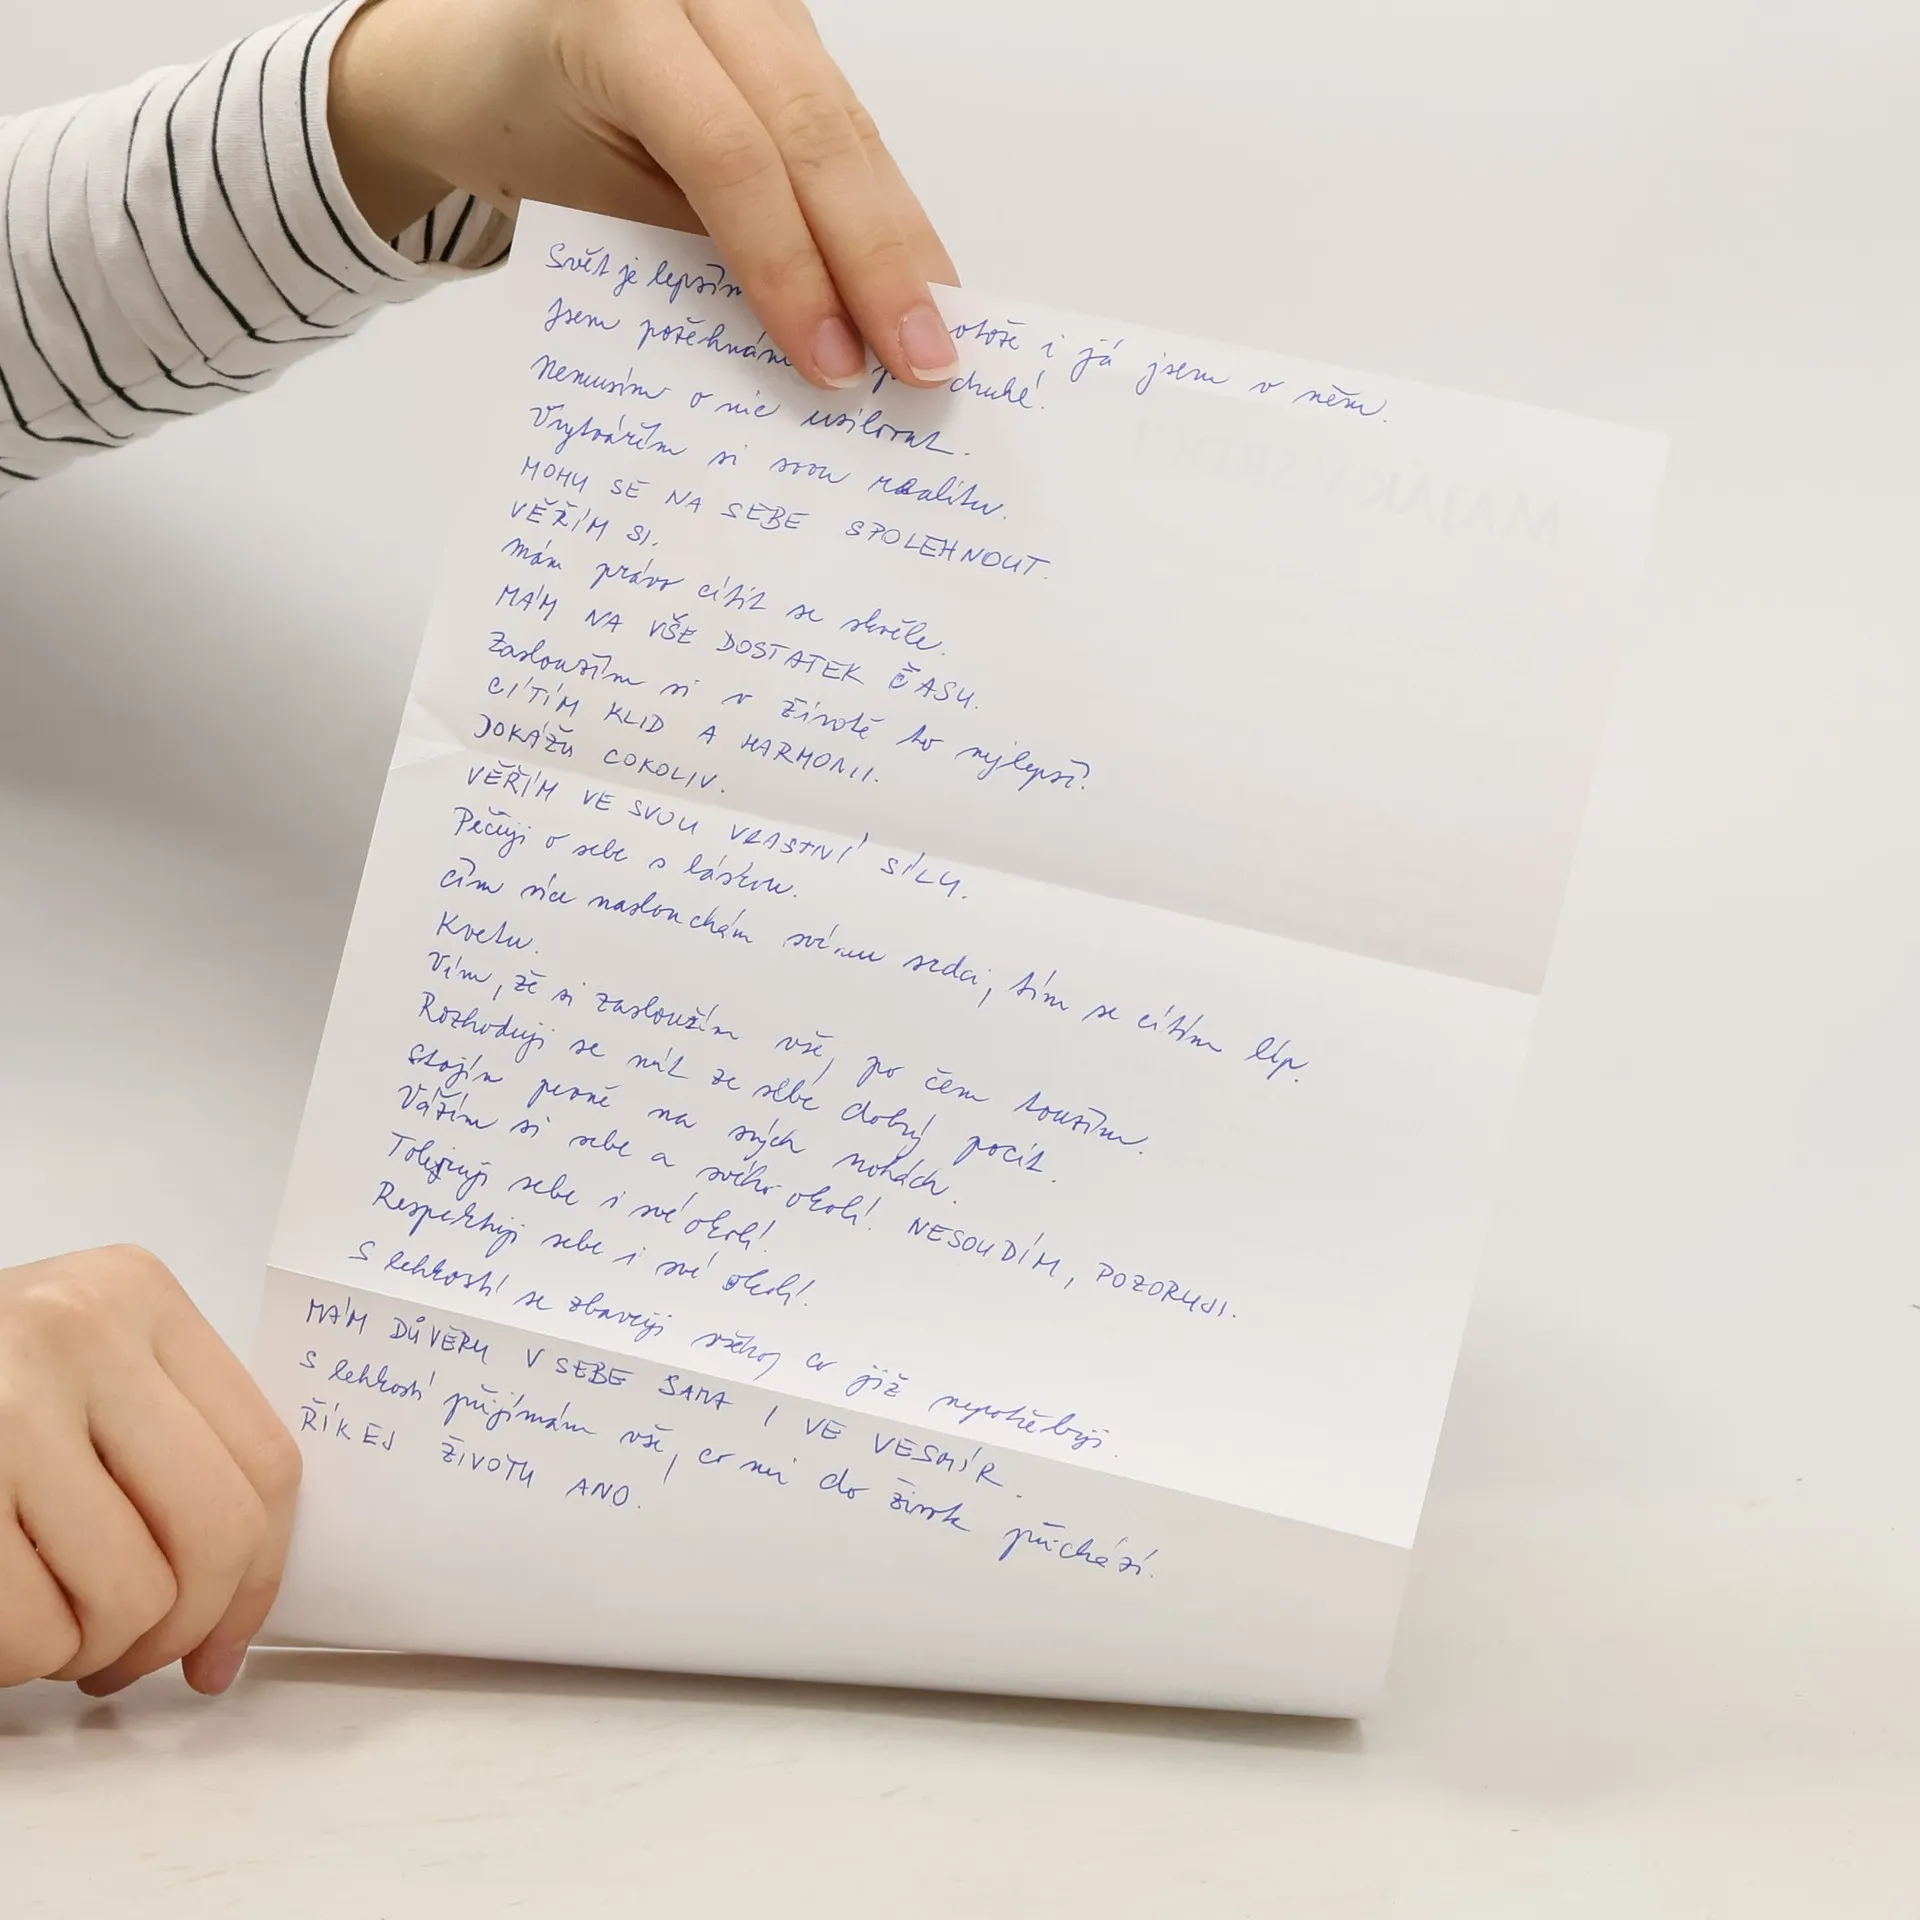 Svět je lepším otože i já jsem v něm.
Jsem požehnán druhé.
Nemusím o nic usilovat.
Vytvářím si svou realitu.
MOHU SE NA SEBE SPOLEHNOUT.
VĚŘÍM SI.
Mám právo cítit se skvěle.
MÁM NA VŠE DOSTATEK ČASU.
Zasloužím si v životě to nejlepší.
CÍTÍM KLID A HARMONII.
DOKÁŽU COKOLIV.
VĚŘÍM VE SVOU VLASTNÍ SÍLU.
Pečuji o sebe s láskou.
Čím více naslouchám svému srdci, tím se cítím líp.
Kvetu.
Vím, že si zasloužím vše, po čem toužím.
Rozhoduji se mít ze sebe dobrý pocit.
Stojím pevně na svých nohách.
Vážím si sebe a svého okolí. NESOUDÍM, POZORUJI.
Toleruji sebe i své okolí.
Respektuji sebe i své okolí.
S lehkostí se zbavuji všeho, co již nepotřebuji.
MÁM DŮVĚRU V SEBE SAMA I VE VESMÍR.
S lehkostí přijímám vše, co mi do života přichází.
ŘÍKEJ ŽIVOTU ANO.